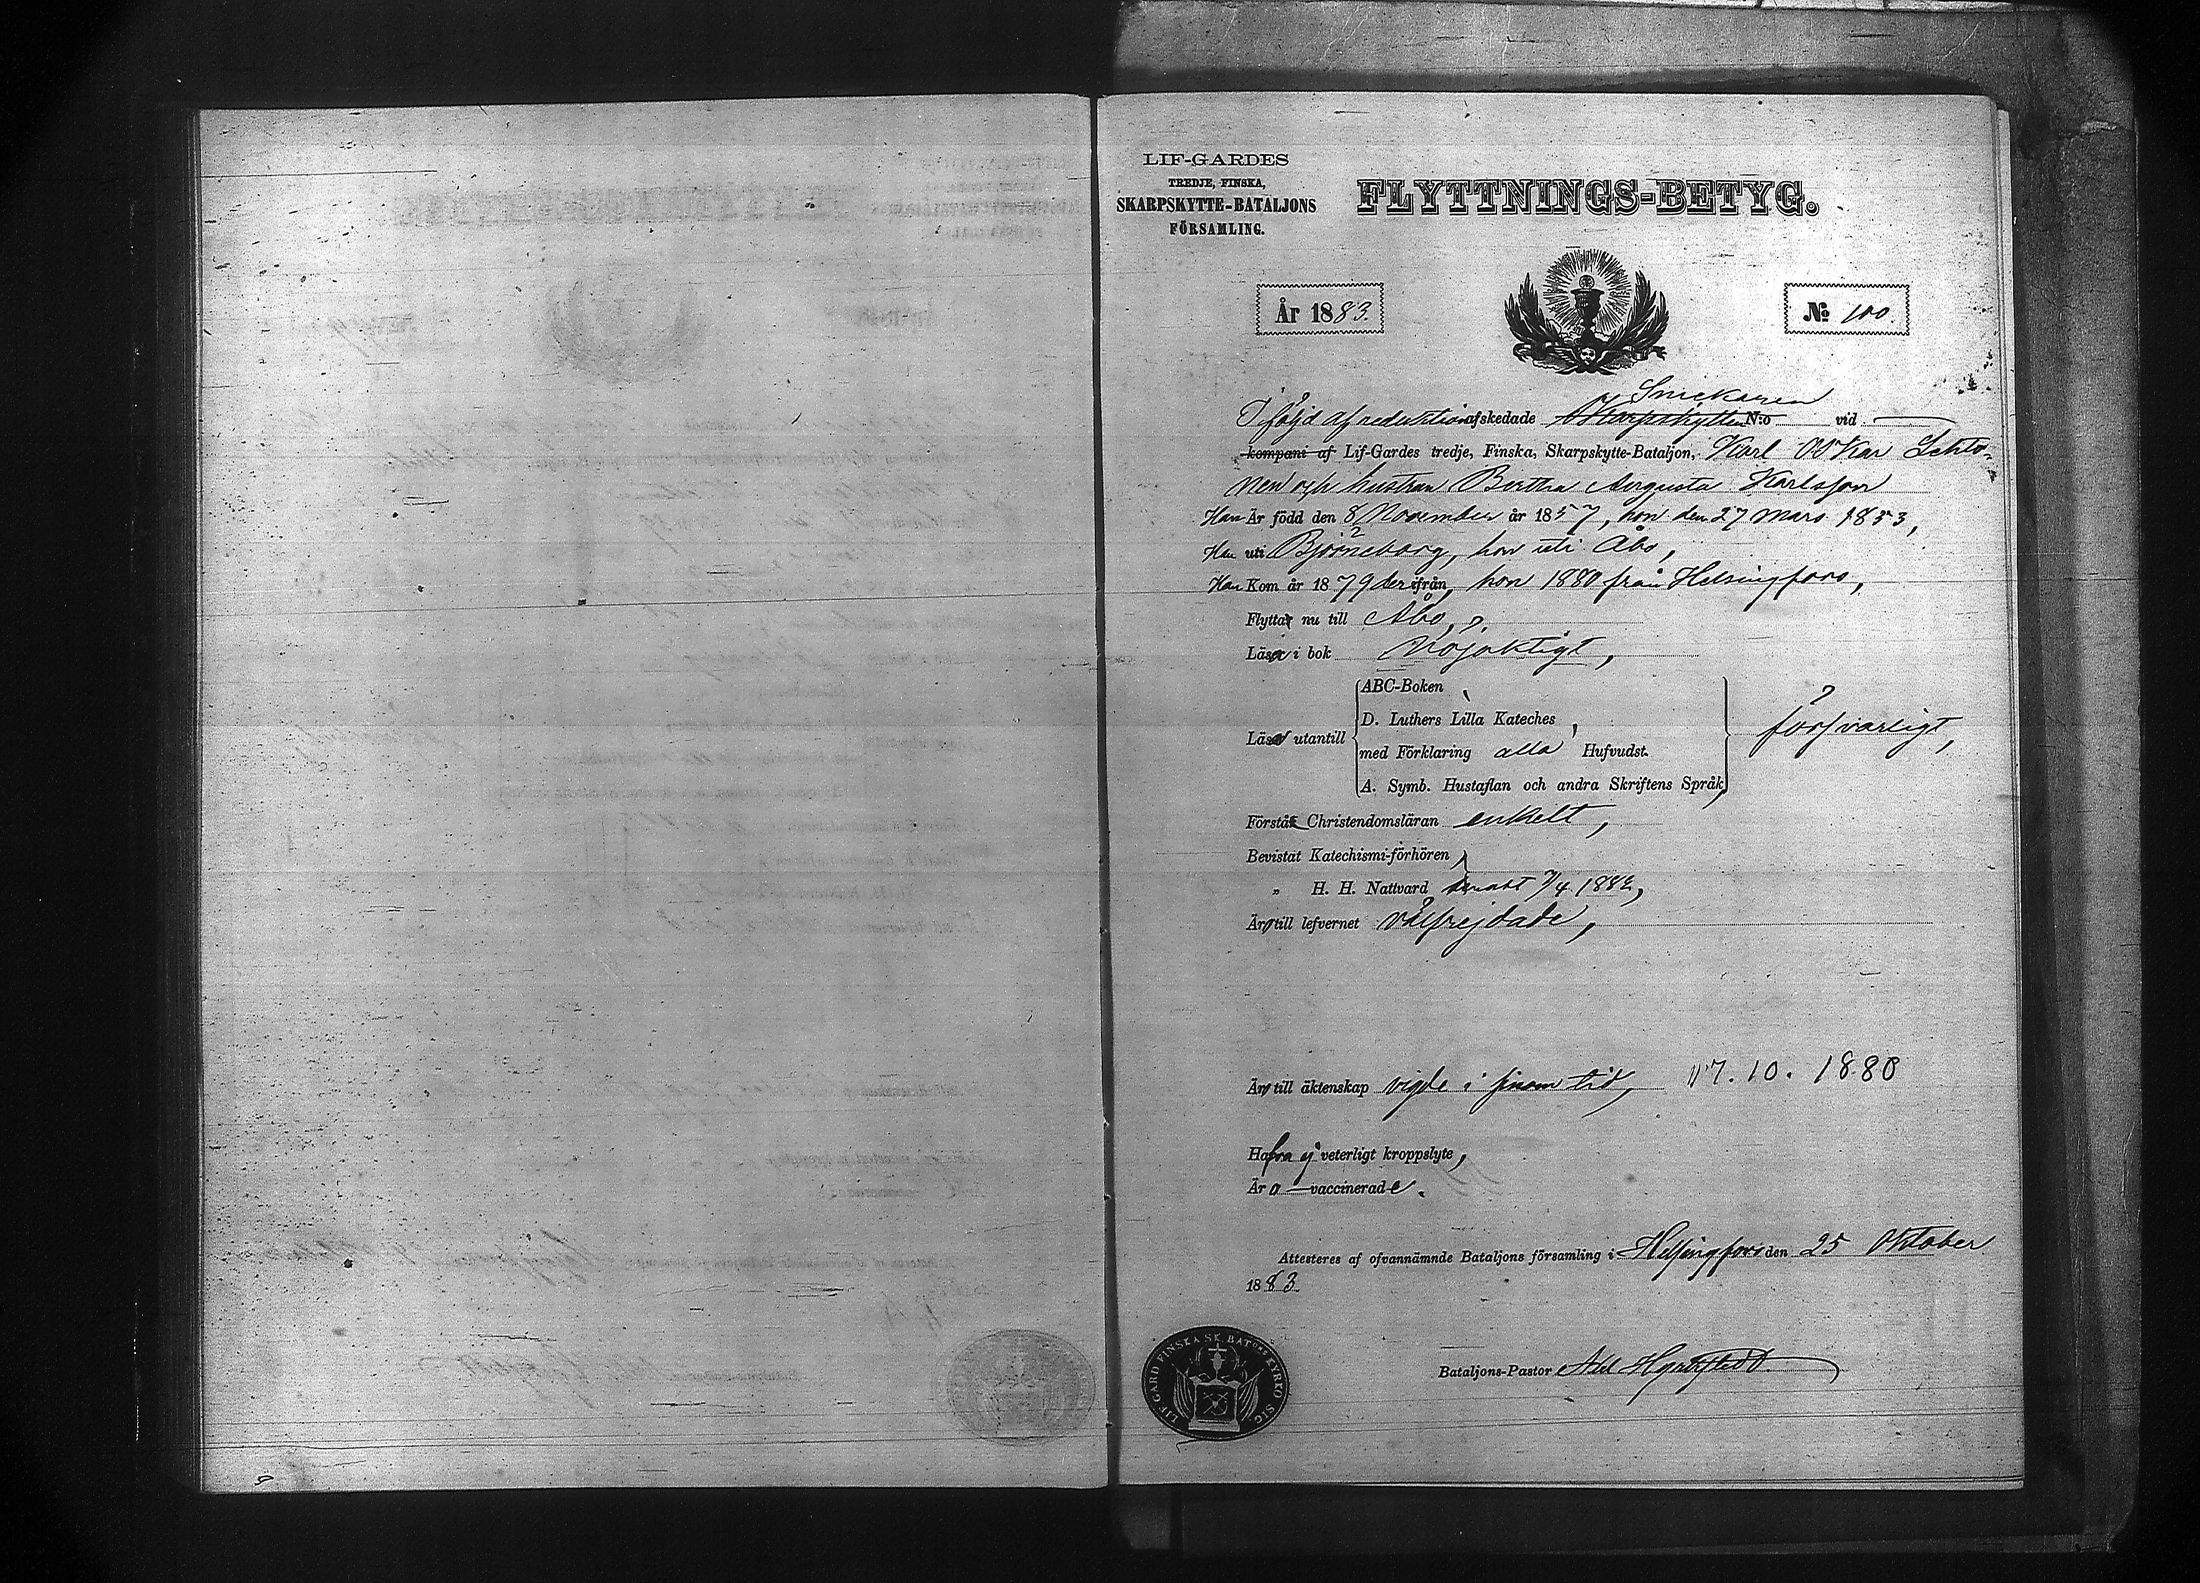 LIF-GARDES
TREDJE, FINSKA,
SKARPSKYTTE-BATALJONS
FÖRSAMLING.
FLYTTNINGS-BETYG.
År 1883.
No 100.
Snickaren
I följd af reduktion afskedade Skarpskytten N:o vid
kompani af Lif-Gardes tredje, Finska, Skarpskytte-Bataljon, Karl Oskar Lehto-
nen och hustrun Bertha Augusta Karlsson
Han Är född den 8 November år 1857, hon den 27 Mars 1853,
Han uti Björneborg, hon uti Åbo,
Han Kom år 1879 derifrån, hon 1880 från Helsingfors,
Flytta nu till Åbo,
Läsa i bok Nöjaktigt,
ABC-Boken
D. Luthers Lilla Kateches
Läsa utantill
med Förklaring alla Hufvudst.
försvarligt,
A. Symb. Hustaflan och andra Skriftens Språk,
Förstå Christendomsläran enkelt,
Bevistat Katechismi-förhören
" H. H. Nattvard senast 7/4 1882,
Äro till lefvernet välfrejdade,
Äro till äktenskap vigde i sinom tid, 17.10.1880
Hafva ej veterligt kroppslyte,
Äro vaccinerade.
Attesteres af ofvannämnde Bataljons församling i Helsingfors den 25 Oktober
1883.
LIF-GARD FINSKA SK. BATONS KYRKO SIG.
Bataljons-Pastor